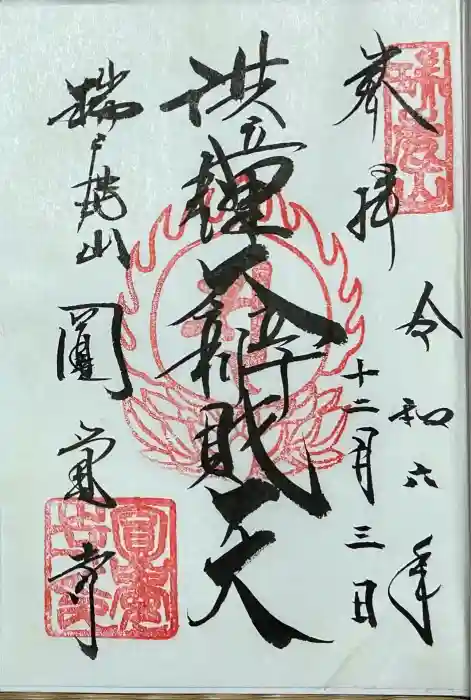 奉拝
令和六年
十二月三日
洪鐘大辨財天
瑞鹿山 圓覚寺